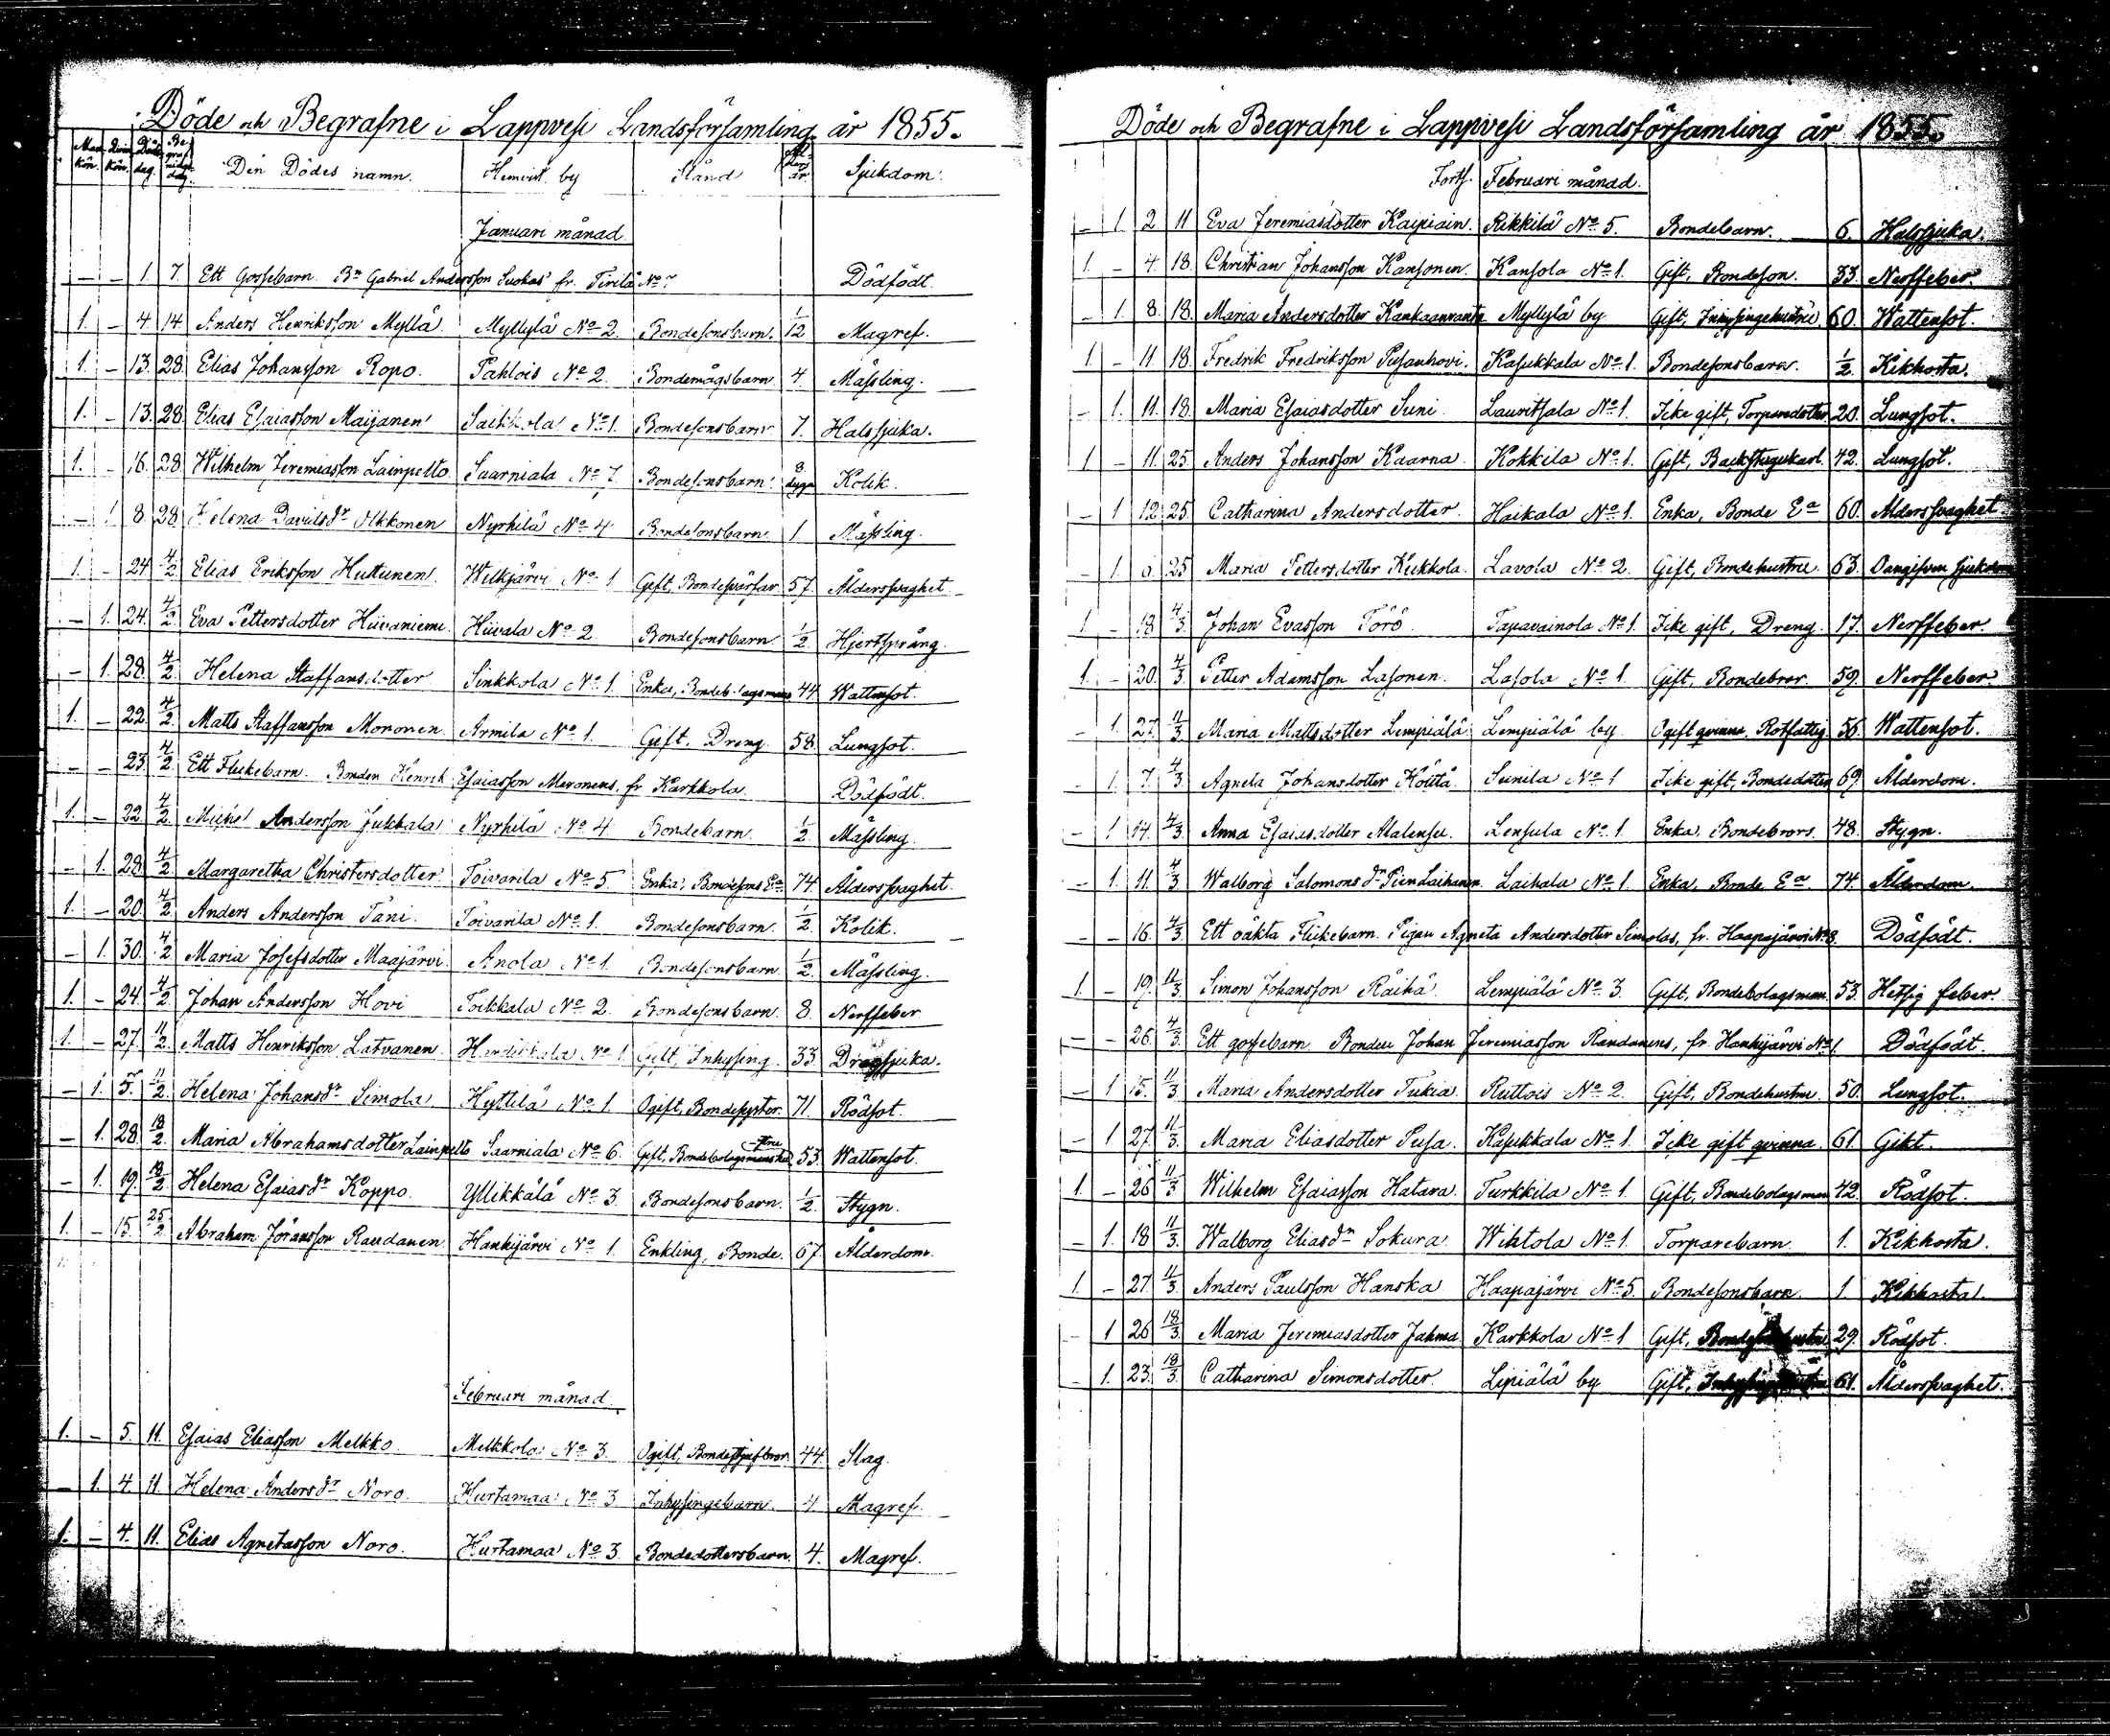 Döde och Begrafne i Lappvesi Landsförsamling år 1855.
Man kön. Qvin kön. Döds dag. Be grafnings dag. Den Dödes namn. Hemvist. by Stånd Ålder år. Sjukdom.
Januari månad.
— — 1. 7. Ett Gossebarn. Bn Gabriel Andersson Suokas' fr. Tirilä No 7 Dödfödt.
1. — 4. 14. Anders Henriksson Myllä. Myllylä No 2. Bondesonsbarn. 1/12 Magref.
1. — 13. 28. Elias Johansson Ropo. Pahlois No 2. Bondemågsbarn 4. Mässling.
1. — 13. 28. Elias Esaiasson Maijanen Saikkola No 1. Bondesonsbarn 7. Halssjuka.
1. — 16. 28. Wilhelm Jeremiasson Lainpelto Saarniala No 7. Bondesonsbarn. 8 dygn Kolik.
— 1. 8. 28. Helena Davidsdr Olkkonen Nyrhilä No 4 Bondesonsbarn. 1. Mässling.
1. — 24. 4/2 Elias Eriksson Huttunen. Wilkjärvi No 1 Gift, Bondesvärfar 57. Åldersvaghet
— 1. 24. 4/2 Eva Pettersdotter Hiivaniemi. Hiivala No 2 Bondesonsbarn 1/2. Hjertsprång.
— 1. 28. 4/2. Helena Staffansdotter Sinkkola No 1. Enka, Bondebolagsmans 44. Wattensot.
1. — 22. 4/2. Matts Staffansson Mononen Armila No 1. Gift. Dreng. 58. Lungsot.
— — 23. 4/2. Ett Flickebarn. Bonden Henrik Esaiasson Meronens, fr Karkkola. Dödfödt.
1. — 22. 4/2. Michel Andersson Jukkala Nyrhilä No 4. Bondebarn. 1/2. Mässling.
— 1. 28. 4/2. Margaretha Christersdotter. Toivarila No 5 Enka, Bondesons Ea. 74. Åldersvaghet.
1. — 20. 4/2. Anders Andersson Tani. Toivarila No 1. Bondesonsbarn. 1/2. Kolik.
— 1. 30. 4/2. Maria Josefsdotter Maajärvi. Anola No 1. Bondesonsbarn. 1/2. Mässling.
1. — 24. 4/2. Johan Andersson Hovi Toikkala No 2. Bondesonsbarn. 8. Nerffeber
1. — 27. 11/2. Matts Henriksson Latvanen. No 1 Gift, Inhysing. 33. Dragsjuka.
— 1. 5. 11/2. Helena Johansdr Simola Hyttilä No 1. Ogift, Bondesyster. 71. Rödsot.
— 1. 28. 18/2. Maria Abrahamsdotter Lainpelto Saarniala No 6. Gift, Bondebolagsmans hustru 53. Wattensot.
— 1. 19. 18/2 Helena Esaiasdr Koppo. Yllikkälä No 3. Bondesonsbarn. 1/2. Stygn.
1. — 15. 25/2 Abraham Göransson Raudanen. Hankijärvi No 1. Enkling, Bonde. 67. Ålderdom.
Februari månad.
1. — 5. 11. Esaias Eliasson Melkko. Melkkola No 3. Ogift, Bondestjufbror. 44. Slag.
— 1. 4. 11. Helena Andersdr Noro. Hurtamaa No 3 Inhysingebarn. 4. Magref.
1. — 4. 11. Elias Agnetasson Noro. Hurtamaa No 3. Bondedottersbarn. 4. Magref.
Döde och Begrafne i Lappvesi Landsförsamling år 1855.
Forts. Februari månad.
— 1. 2. 11 Eva Jeremiasdotter Kaipiain. Rikkilä No 5. Bondebarn. 6. Halssjuka.
1. — 4. 18. Christian Johansson Kansonen. Kansola No 1. Gift, Bondeson. 33. Nerffeber.
— 1. 8. 18. Maria Andersdotter Kankaanranta Myllylä by Gift, Inhysingehustru 60. Wattensot.
1 — 11 18. Fredrik Fredriksson Pusanhovi. Kasukkala No 1. Bondesonsbarn. 1/2. Kikhosta.
— 1. 11. 18. Maria Esaiasdotter Suni. Lauritsala No 1. Icke gift, Torparedotter 20. Lungsot.
1 — 11. 25. Anders Johansson Kaarna. Kokkila No 1. Gift, Backstugukarl. 42. Lungsot.
— 1 12. 25. Catharina Andersdotter. Haikala No 1. Enka, Bonde Ea 60. Åldersvaghet.
— 1. 6. 25 Maria Pettersdotter Kukkola. Lavola No 2. Gift, Bondehustru. 63. Oangifven Sjukdom
1. — 18. 4/3. Johan Evasson Törö. Tapavainola No 1. Icke gift, Dreng. 17. Nerffeber.
1. — 20. 4/3. Petter Adamsson Lasonen. Lasola No 1. Gift, Bondebror. 59. Nerffeber.
— 1 27. 11/3. Maria Mattsdotter Lempiälä Lempiälä by. Ogift qvinna, Rotfattig 56. Wattensot.
— 1. 7. 4/3 Agneta Johansdotter Költtä. Sunila No 1 Icke gift, Bondedotter 69. Ålderdom.
— 1 14. 4/3 Anna Esaiasdotter Alalensu. Lensula No 1. Enka. Bondebrors. 48. Stygn.
— 1. 11. 4/3 Walborg Salomonsdr Pien Laihanen. Laihala No 1. Enka. Bonde Ea. 74. Ålderdom.
— — 16. 4/3. Ett oäkta Flickebarn. Pigan Agneta Andersdotter Simolas, fr. Haapajärvi No 8. Dödfödt.
1. — 19. 11/3. Simon Johansson Räihä. Lempiälä No 3. Gift, Bondebolagsman. 53. Hetsig feber.
— — 26. 4/3. Ett gossebarn. Bonden Johan Jeremiasson Raudanens, fr. Hankijärvi No 1. Dödfödt.
— 1 15. 11/3. Maria Andersdotter Tukia. Ruttois No 2. Gift, Bondehustru. 50. Lungsot.
— 1 27. 11/3. Maria Eliasdotter Pusa. Kasukkala No 1. Icke gift qvinna. 61. Gikt.
1. — 26 11/3 Wilhelm Esaiasson Hatara. Turkkila No 1. Gift, Bondebolagsman 42. Rödsot.
— 1. 18 11/3. Walborg Eliasdr Sokura. Wihtola No 1. Torparebarn. 1. Kikhosta.
1. — 27. 11/3. Anders Paulsson Hanska Haapajärvi No 5. Bondesonsbarn. 1. Kikhosta.
— 1 26 18/3. Maria Jeremiasdotter Jahma. Karkkola No 1 Gift, 29. Rödsot.
— 1. 23. 18/3. Catharina Simonsdotter. Lipiälä by Gift, 61. Åldersvaghet.